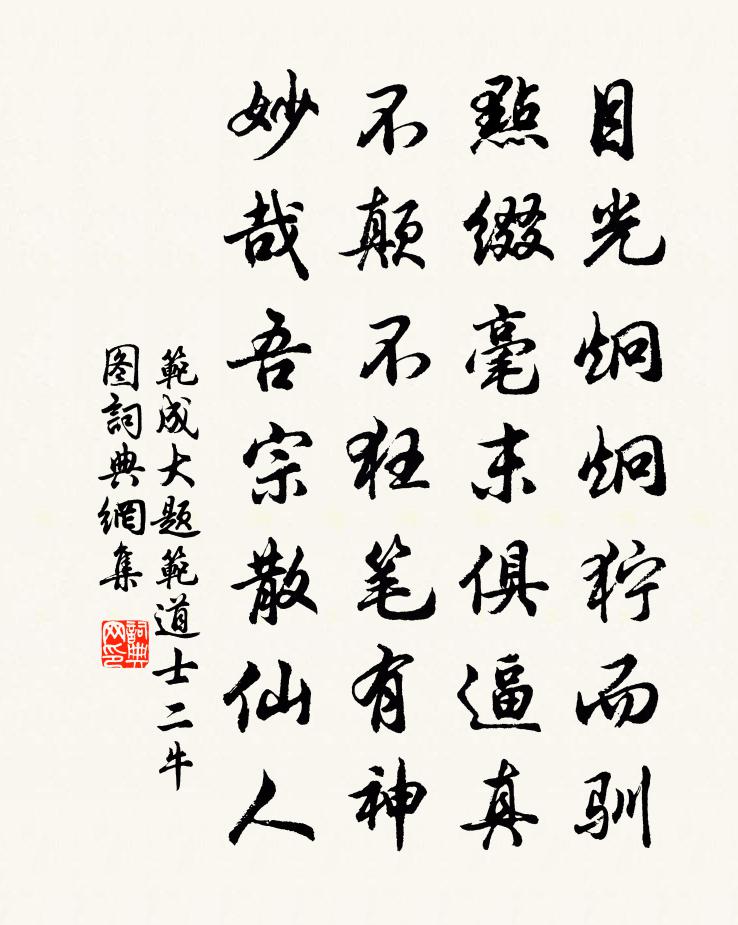 目光炯炯狞而驯
點缀毫末俱逼真
不颠不狂笔有神
妙哉吾宗散仙人
範成大题範道士二牛
图詞典網集
詞典
网印